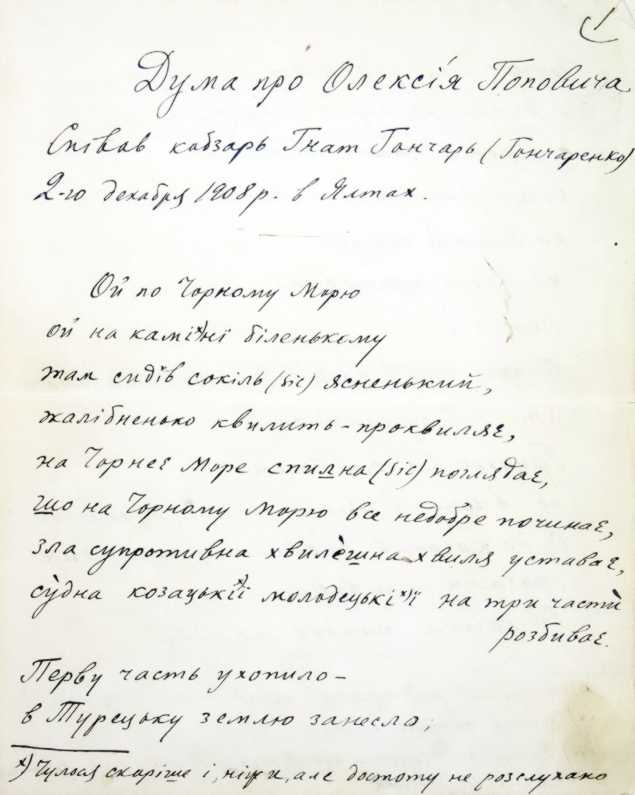 1
Дума про Олексія Поповича
Співав кобзарь Гнат Гончарь (Гончаренко)
2-го декабря 1908 р. в Ялтах.
Ой по Чорному Морю
ой на камі х) ні біленькому
там сидів сокіль (sic) ясненький,
жалібненько квилить-проквиляє,
на Чорнеє Море спилна (sic) поглядає,
що на Чорному Морю все недобре починає,
зла супротивна хвилешна хвиля уставає,
су̀дна козацькі х) ї молодецькі х) ї на три частѝ
розбиває.
Перву часть ухопило –
в Турецьку землю занесло;
х) Чулося скоріше і, ніж и, але достоту не розслухано